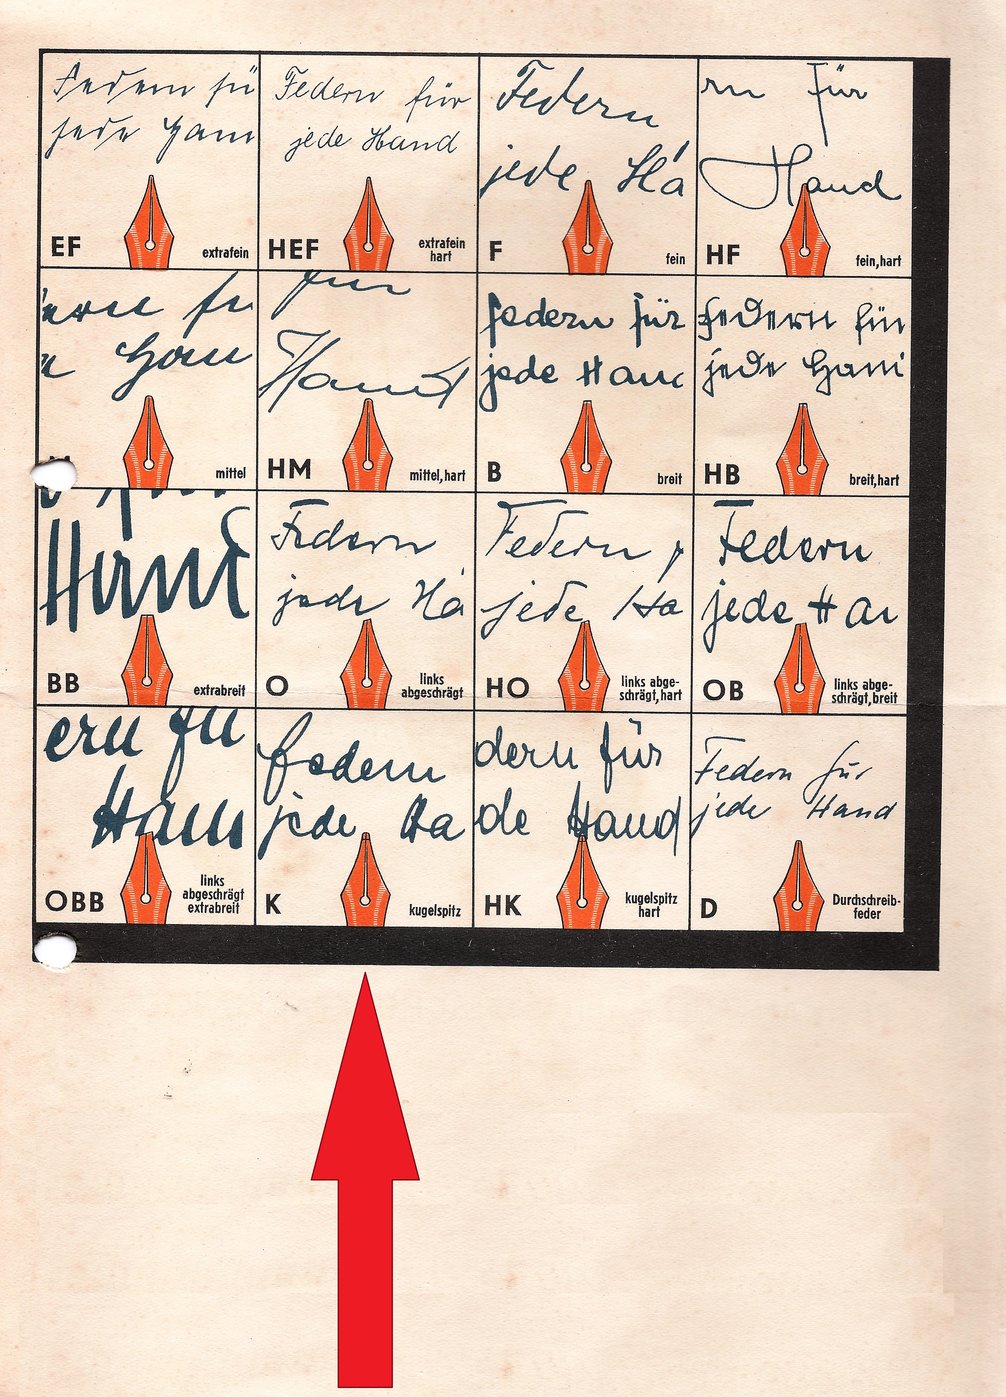 Federn fü
jede Han
EF
extrafein
Federn für
jede Hand
HEF
extrafein
hart
Federn
jede Ha
F
fein
rn für
Hand
HF
fein,hart
ern fü
Han
mittel
für
Hand
HM
mittel,hart
Federn für
jede Han
B
breit
Federn für
jede Han
HB
breit,hart
Hand
BB
extrabreit
Federn
jede Ha
O
links
abgeschrägt
Federn
jede Ha
HO
links abge-
schrägt,hart
Federn
jede Han
OB
links abge-
schrägt,breit
ern fü
Han
OBB
links
abgeschrägt
extrabreit
Federn
jede Ha
K
kugelspitz
dern für
de Hand
HK
kugelspitz
hart
Federn für
jede Hand
D
Durchschreib-
feder